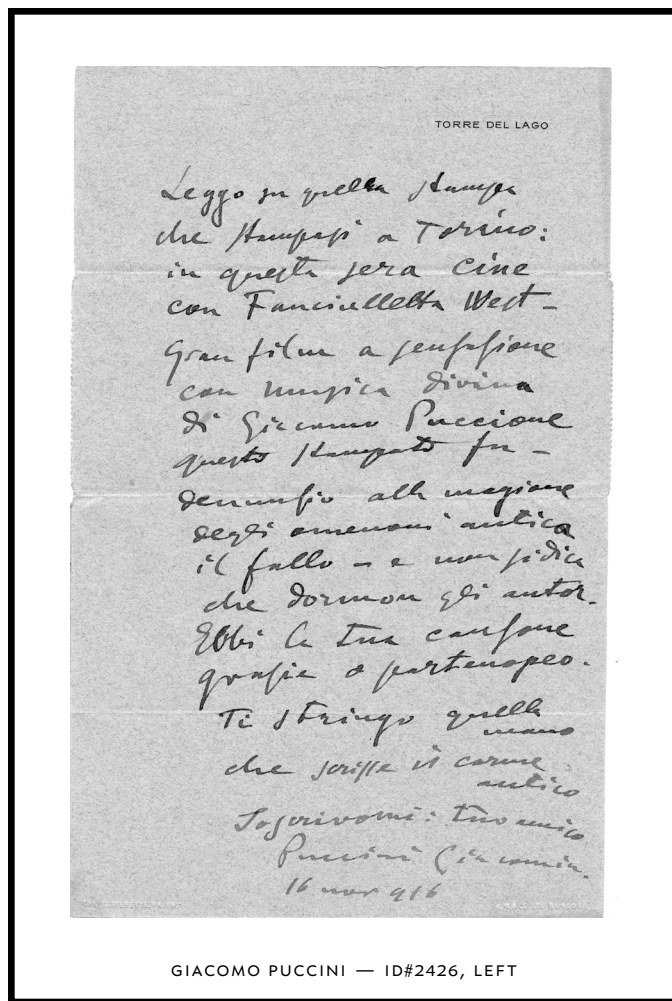 TORRE DEL LAGO
Leggo su quella stampa
che stampasi a Torino:
in questa sera Cine
con Fanciulletta West –
Gran film a sensasione
con musica divina
di Giacomo Puccione
questo stampato fu –
denunsio alla magione
degli omenoni antica
il fallo – e non si dica
che dormon gli autor.
Ebbi la tua cansone
grasie o partenopeo.
Ti stringo quella
mano
che scrisse il carme
antico
Soscrivomi: tuo amico
Puccini Giacomin.
16 nov 916
GIACOMO PUCCINI — ID#2426, LEFT